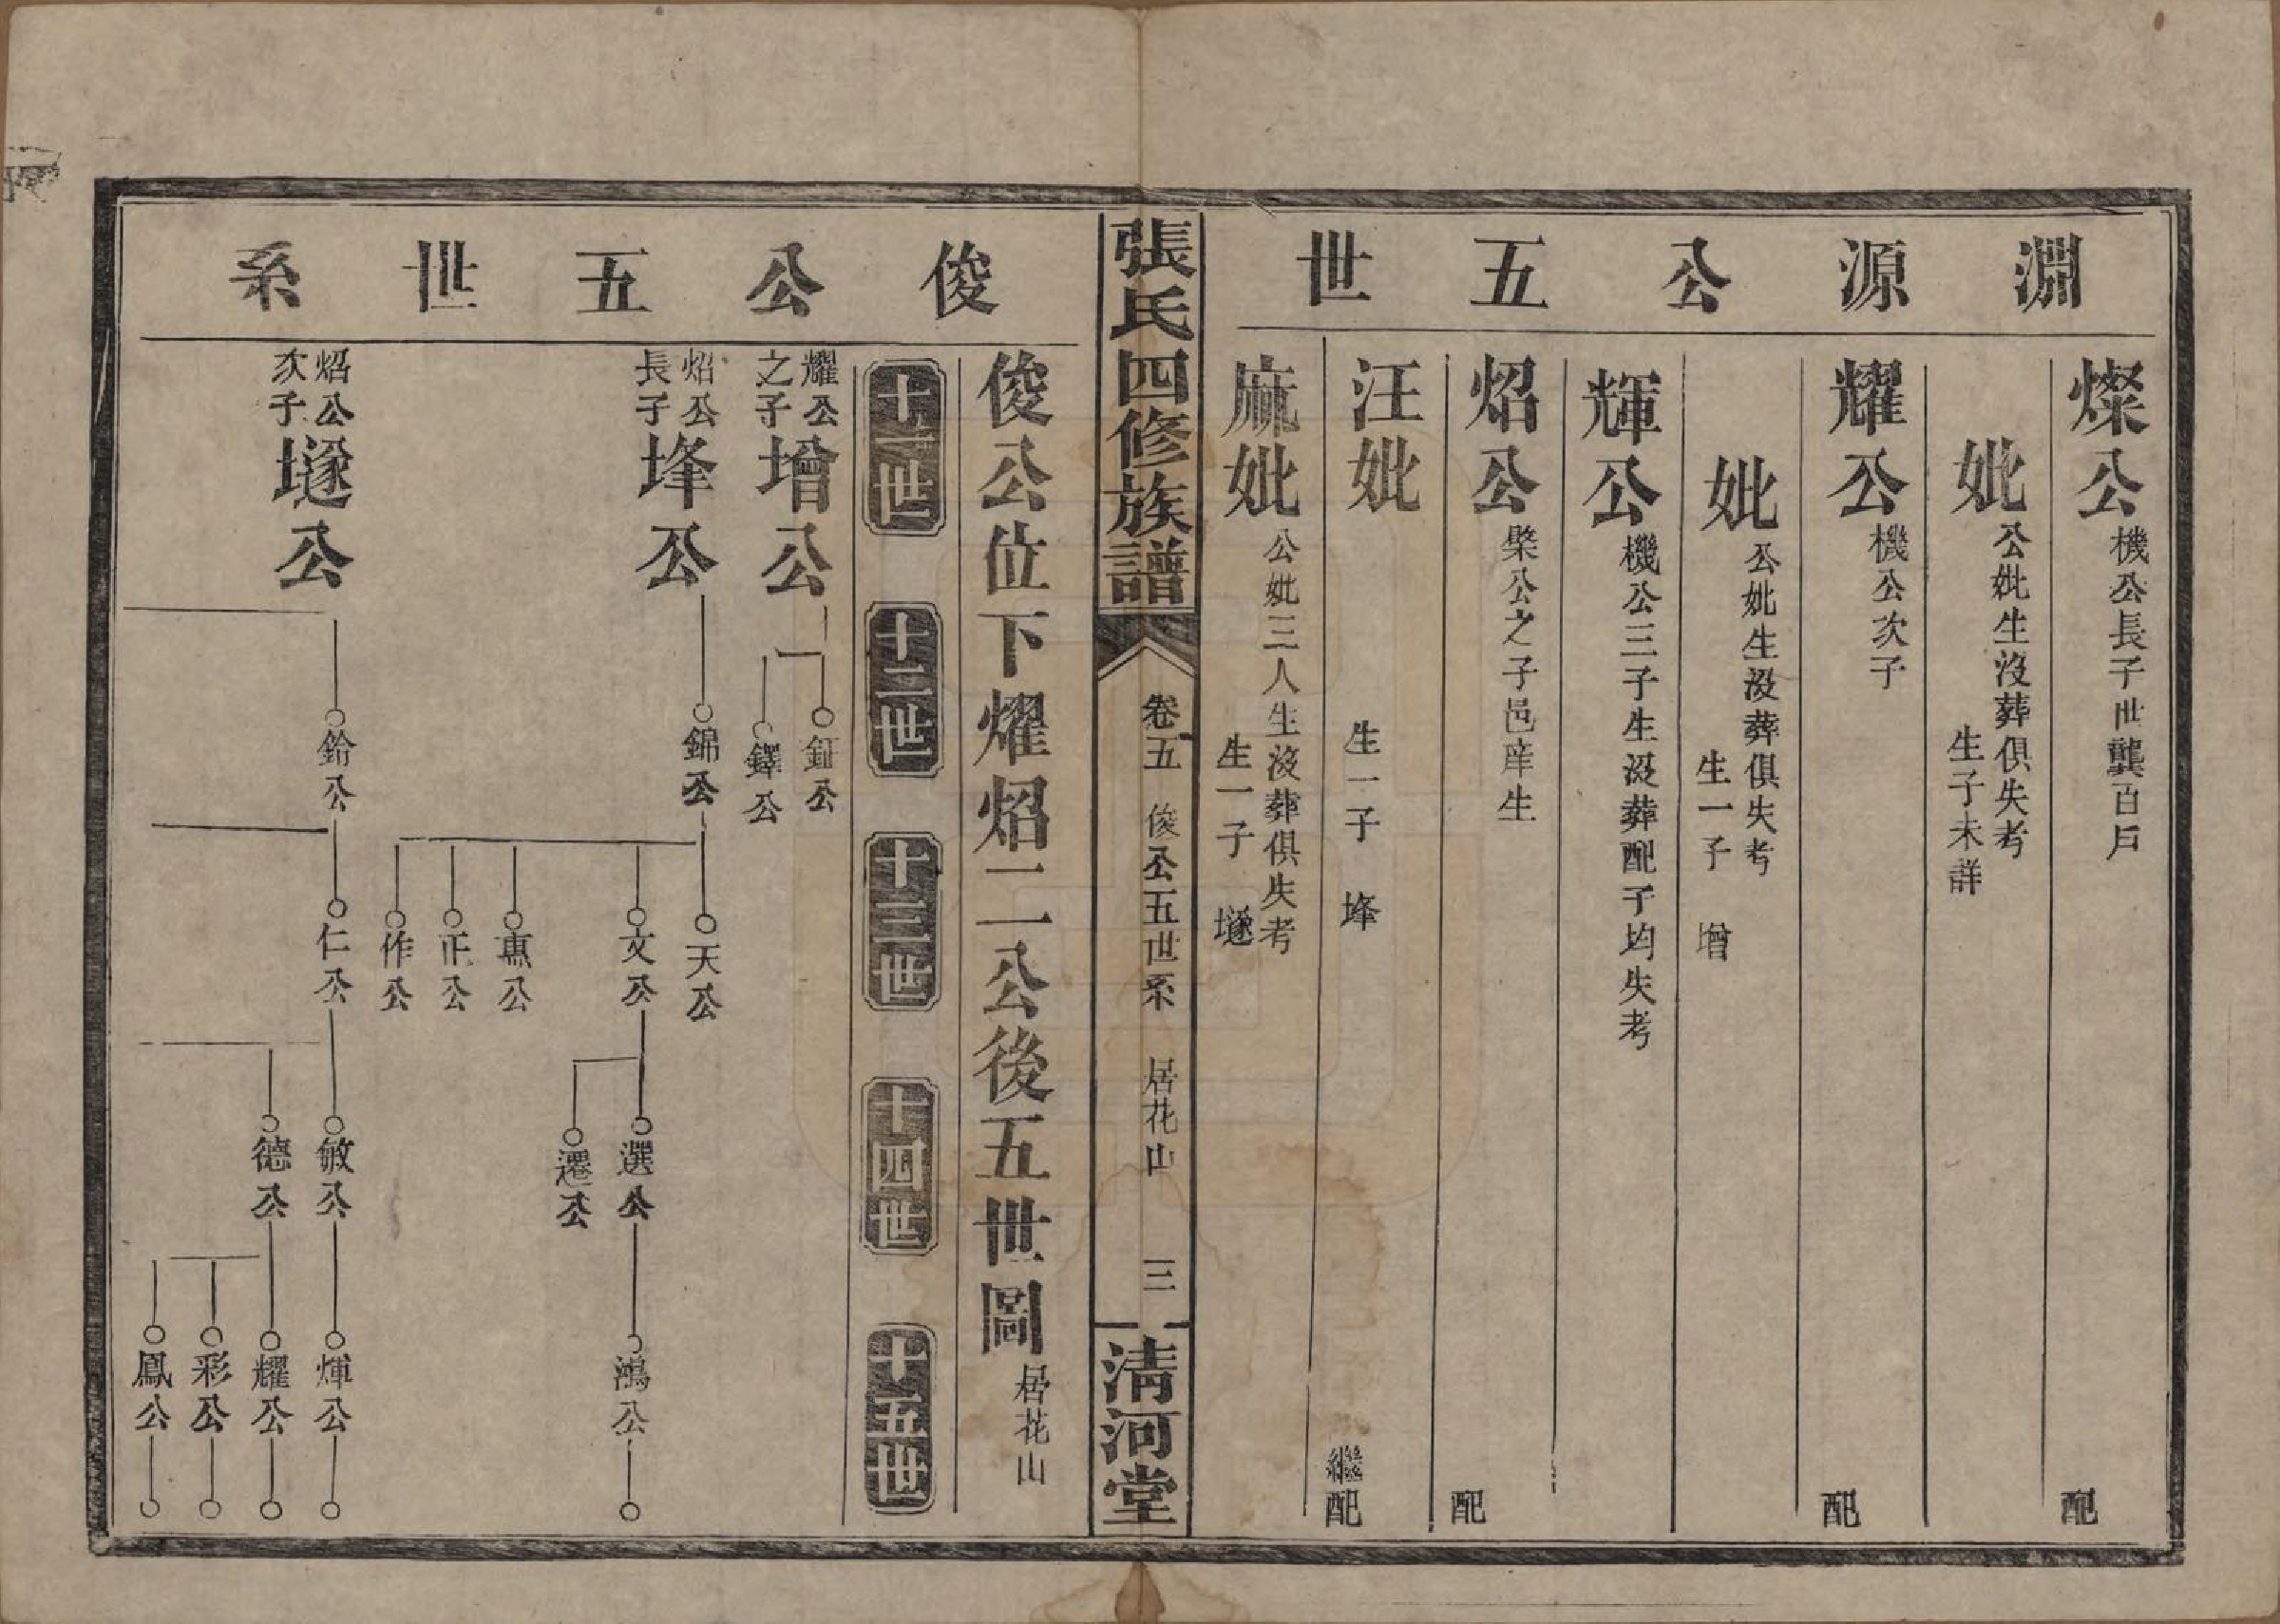 淵源公五世
燦公 機公長子世襲百戶 配
妣 公妣生沒葬俱失考 生子未詳
耀公 機公次子 配
妣 公妣生沒葬俱失考 生一子 增
輝公 機公三子生沒葬配子均失考
炤公 棨公之子邑庠生 配
汪妣 生一子 埄 繼配
麻妣 公妣三人生沒葬俱失考 生一子 墜
張氏四修族譜 卷五 俊公五世系 居花山 三 清河堂
俊公五世系
俊公位下燿炤二公後五世圖 居花山
十一世 十二世 十三世 十四世 十五世
耀公之子 增公
鉦公
鐸公
炤公長子 埄公
錦公
天公
文公
惠公
正公
作公
選公
遷公
鴻公
炤公次子 墜公
鈴公
仁公
敏公
德公
煇公
耀公
彩公
鳳公